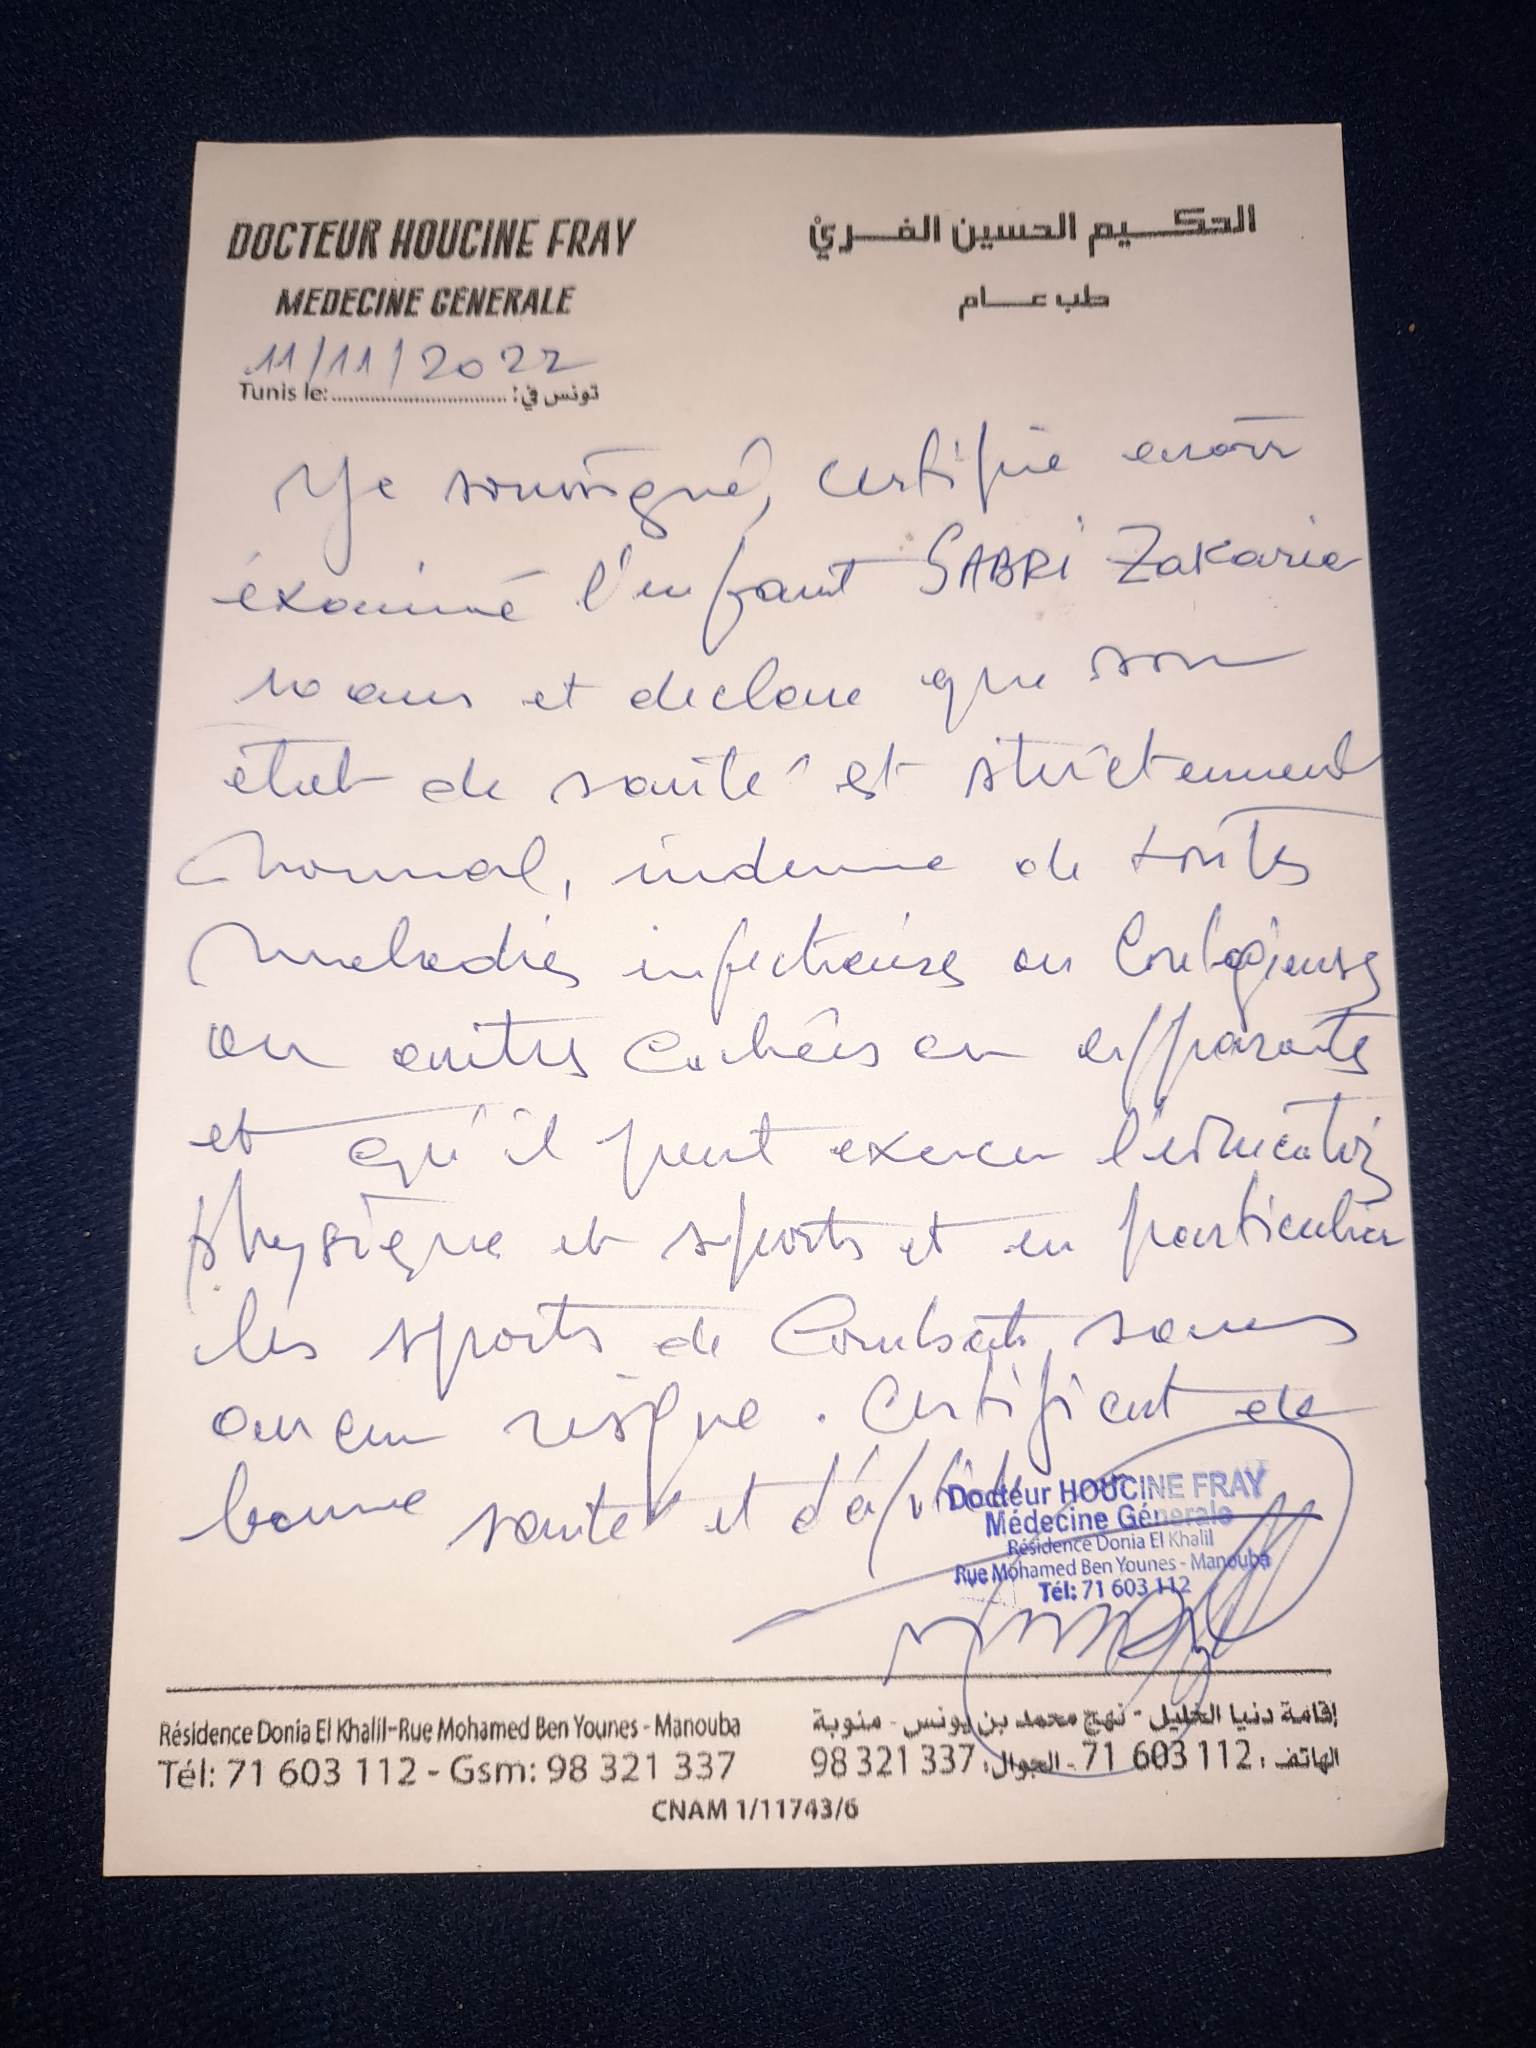 DOCTEUR HOUCINE FRAY
MEDECINE GENERALE
الحكيم الحسين الفري
طب عام
11/11/2022
Tunis le:................................ تونس في:
Je soussigné, certifie avoir
éxaminé l'enfant SABRI Zakaria
10 ans et declare que son
état de santé est strictement
normal, indemne de toutes
maladies infectieuses ou contagieuses
ou autres cachées ou apparentes
et qu'il peut exercer l'éducation
physique et sports et en particulier
les sports de combats sans
aucun risque. Certificat de
bonne santé et d'aptitude
Docteur HOUCINE FRAY
Médecine Générale
Résidence Donia El Khalil
Rue Mohamed Ben Younes - Manouba
Tél: 71 603 112
Résidence Donia El Khalil-Rue Mohamed Ben Younes - Manouba
Tél: 71 603 112 - Gsm: 98 321 337
إقامة دنيا الخليل - نهج محمد بن يونس - منوبة
الهاتف : 71 603 112 - الجوال: 98 321 337
CNAM 1/11743/6